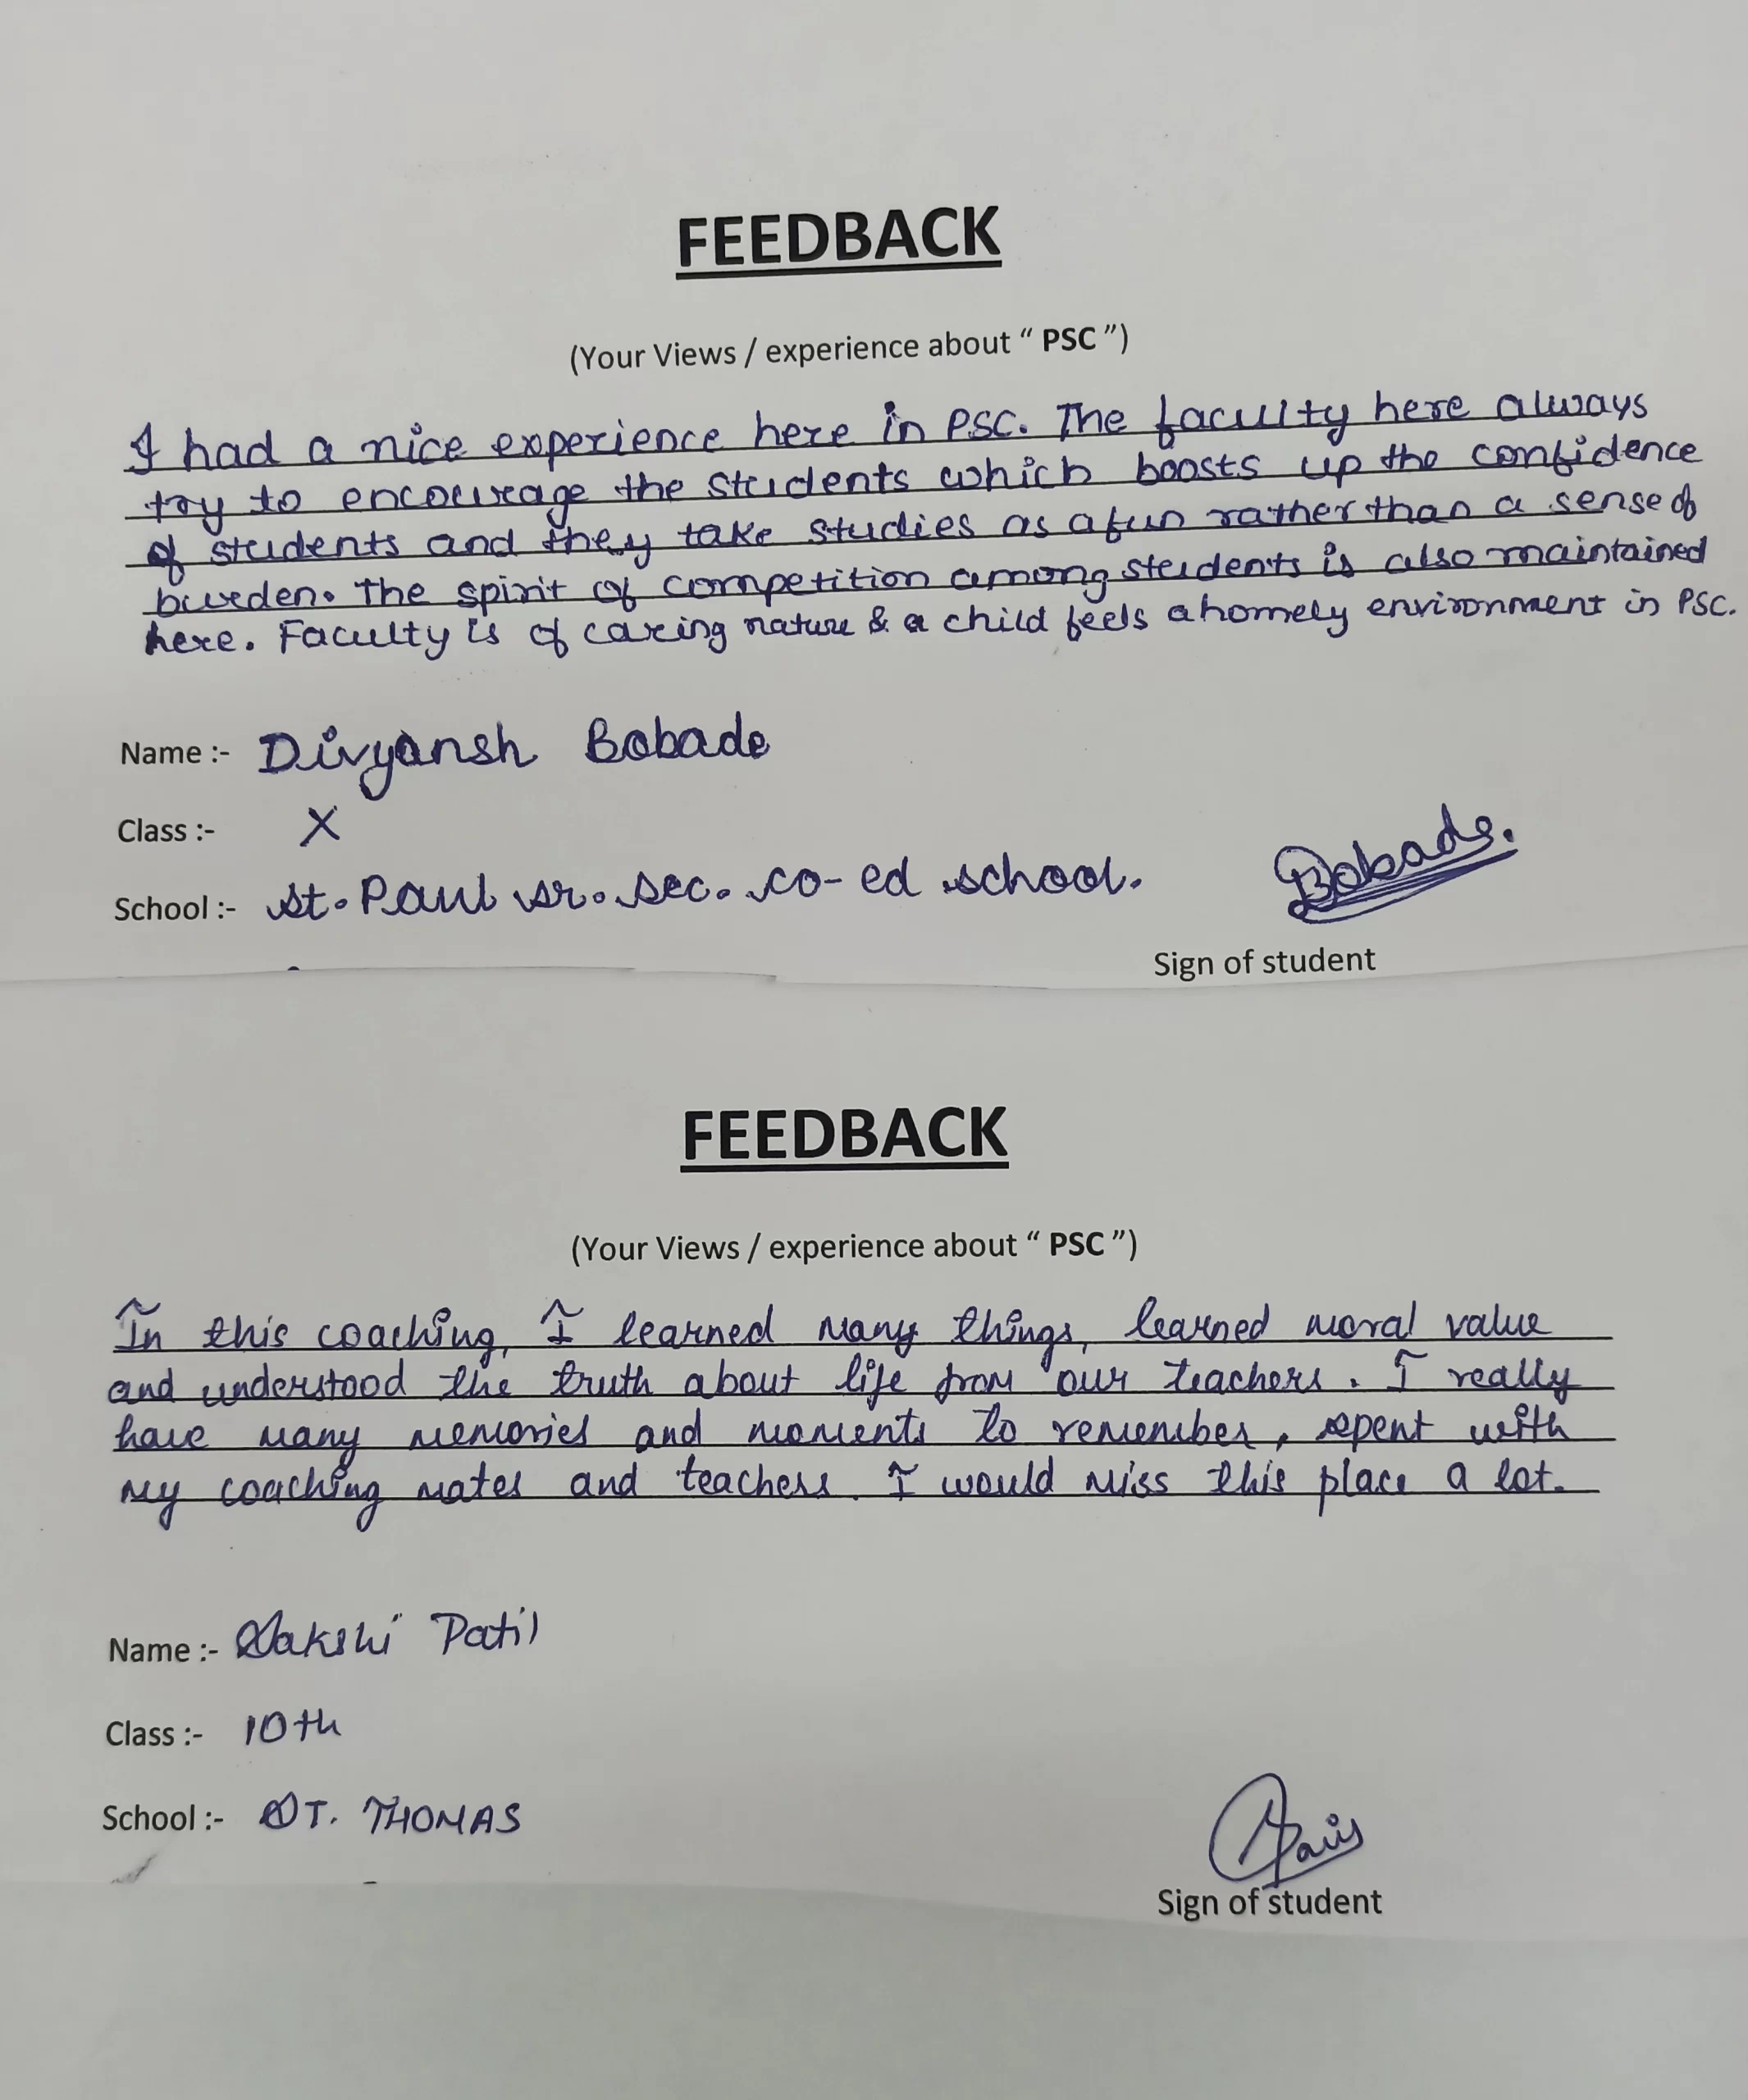 FEEDBACK
(Your Views / experience about “ PSC ”)
I had a nice experience here in PSC. The faculty here always
try to encourage the students which boosts up the confidence
of students and they take studies as a fun rather than a sense of
burden. The spirit of competition among students is also maintained
here. Faculty is of caring nature & a child feels a homely environment in PSC.
Name :- Divyansh Bobade
Class :- X
School :- St. Paul sr. sec. co-ed school.
Bobade.
Sign of student
FEEDBACK
(Your Views / experience about “ PSC ”)
In this coaching, I learned many things, learned moral value
and understood the truth about life from our teachers. I really
have many memories and moments to remember, spent with
my coaching mates and teachers. I would miss this place a lot.
Name :- Sakshi Patil
Class :- 10th
School :- ST. THOMAS
Sign of student